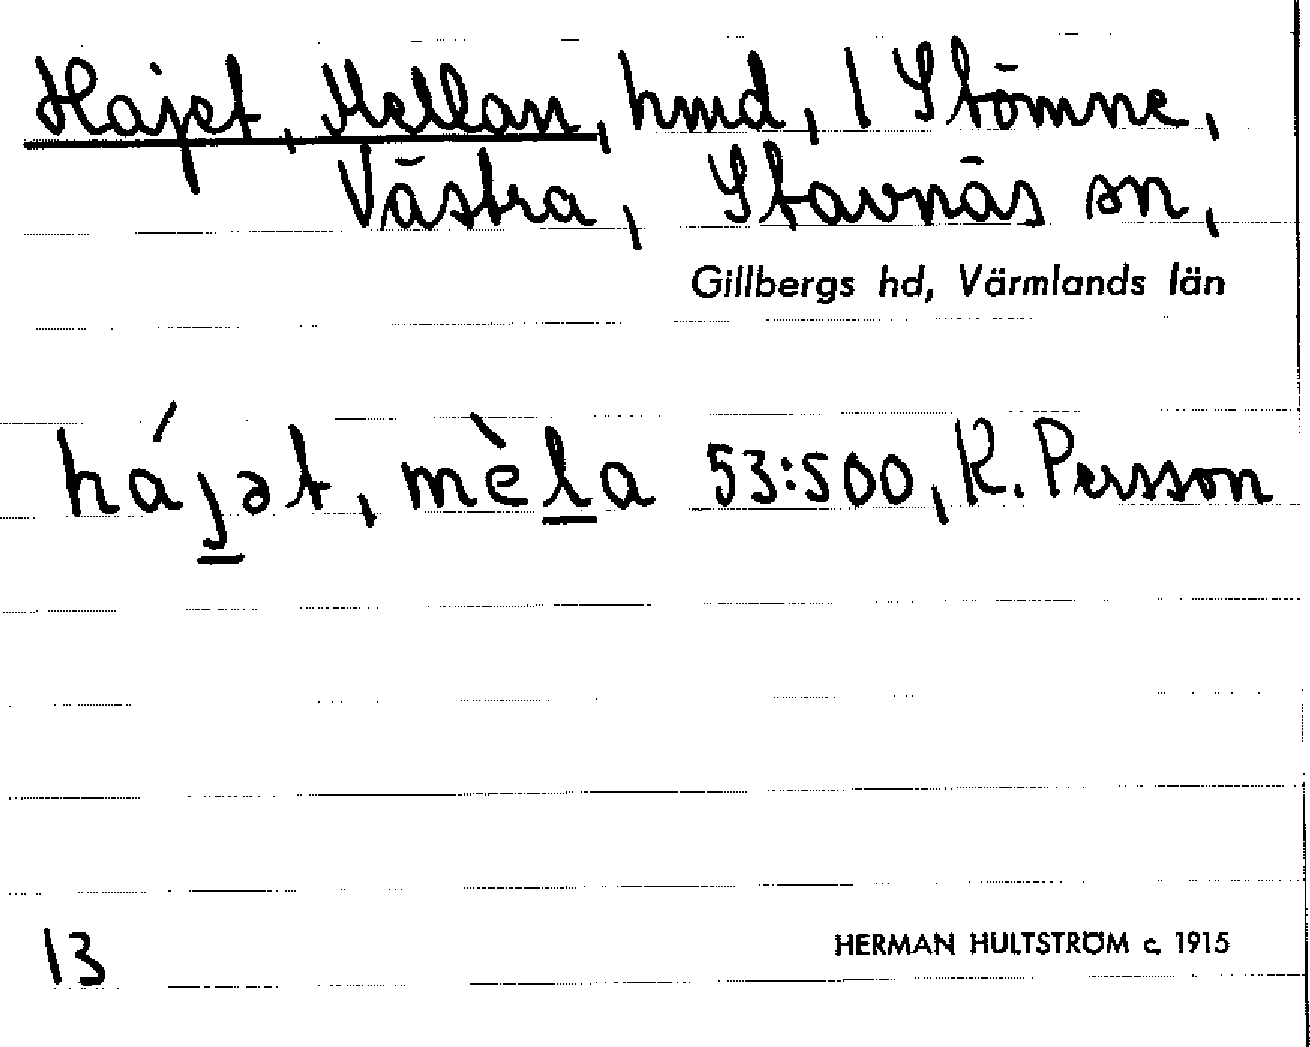 Hajet, Mellan, hmd, 1 Stömne,
Västra, Stavnäs sn,
Gillbergs hd, Värmlands län
háj̱ət, mèḻa 53:500, K. Persson
13
HERMAN HULTSTRÖM c. 1915